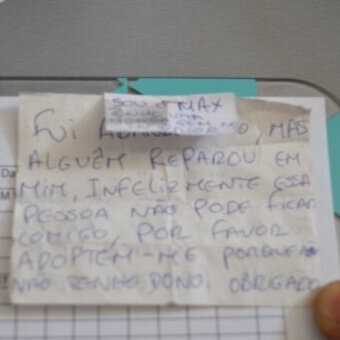 SOU O MAX
FUI ABANDONADO, MAS
ALGUÉM REPAROU EM
MIM, INFELIZMENTE ESSA
PESSOA NÃO PODE FICAR
COMIGO, POR FAVOR
ADOPTEM-ME PORQUE
NÃO TENHO DONO. OBRIGADO